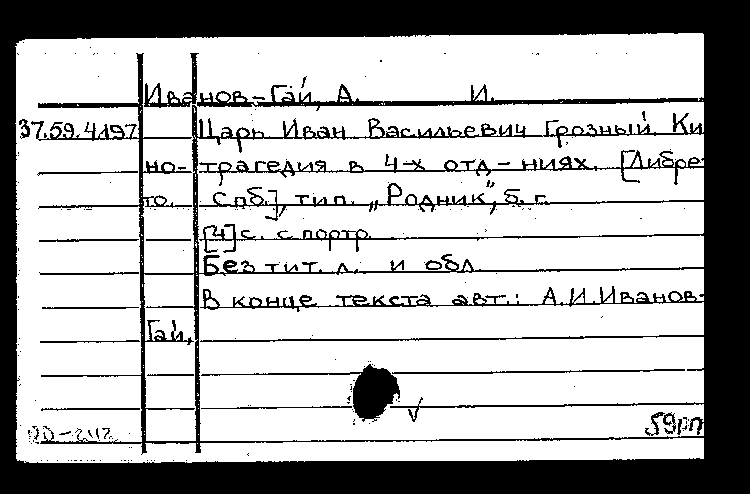 Иванов-Гай, А. И.
37.59.4197 Царь Иван Васильевич Грозный. Ки
но-трагедия в 4-х отд-ниях. [Либре-
то. Спб.], тип. „Родник", б. г.
[4] с. с портр.
Без тит. л. и обл.
В конце текста авт.: А.И.Иванов-
Гай.
59рп